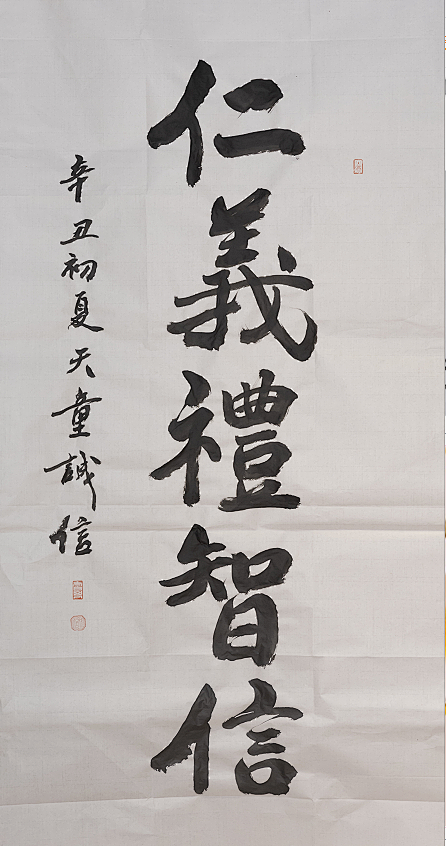 仁義禮智信
辛丑初夏天童誠信